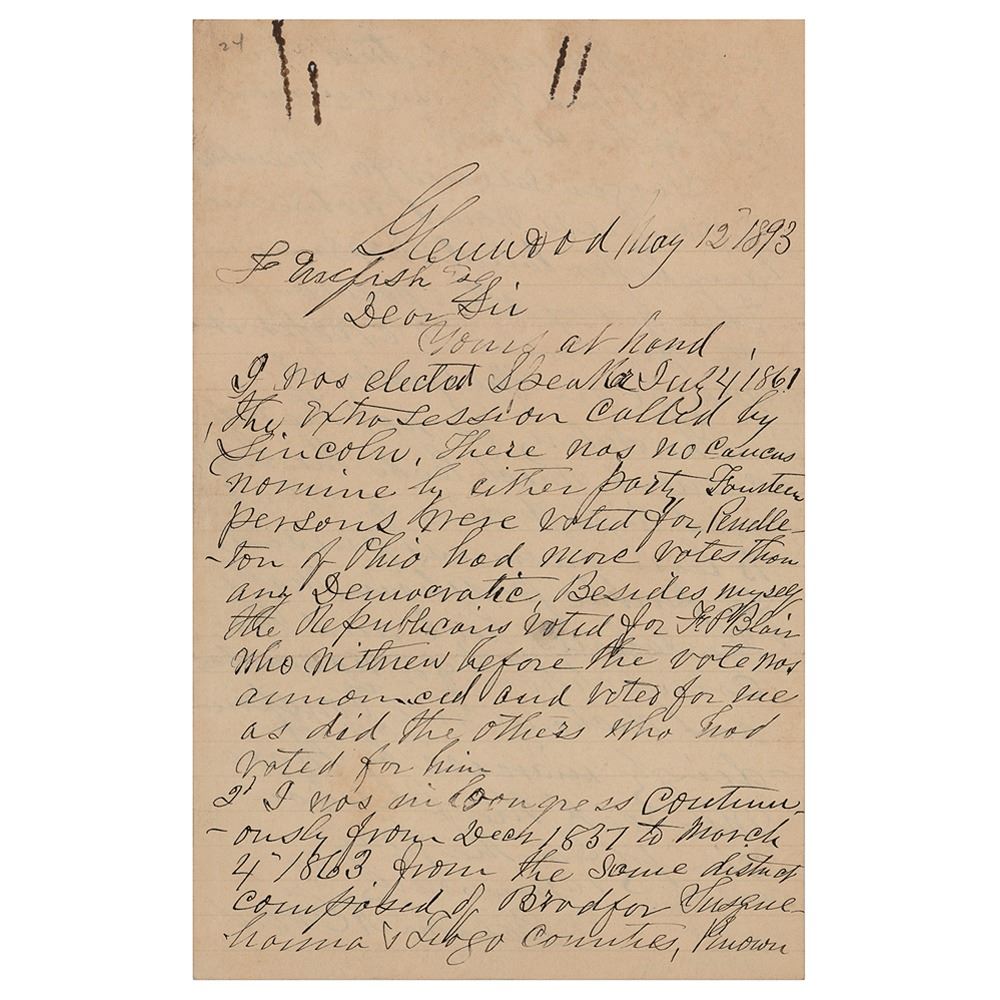 24
Glenwood May 12" 1893
English Esq
Dear Sir
Yours at hand
I was elected Speaker July 4' 1861
The extra session called by
Lincoln. There was no caucus
nomine by either party Fourteen
persons were voted for, Pendle-
-ton of Ohio had more votes than
any Democratic, Besides myself
the Republicans voted for F P Blair
who withrew before the vote was
announced and voted for me
as did the others who had
voted for him
2d I was in Congress continu-
-ously from Decr 1851 to March
4" 1863 from the same district
composed of Bradfor Susque-
hanna & Tioga counties, Known